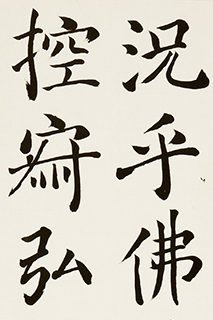 況乎佛
控寂弘